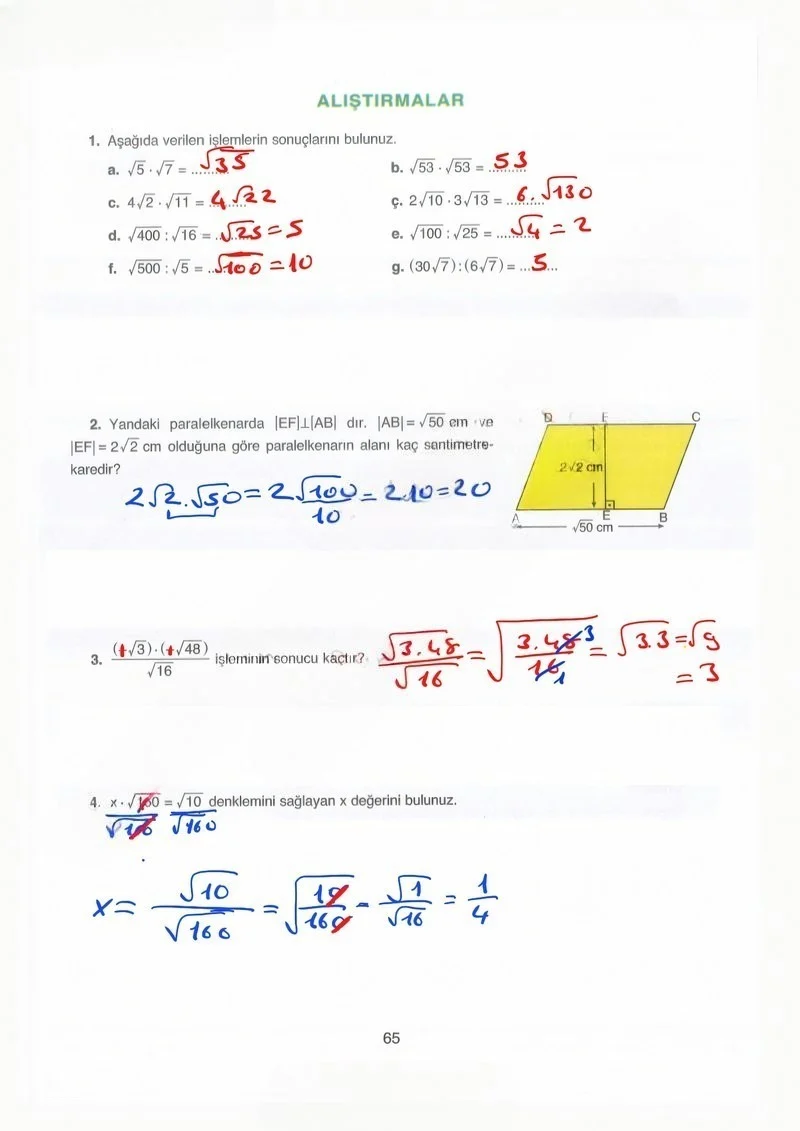 ALIŞTIRMALAR
1. Aşağıda verilen işlemlerin sonuçlarını bulunuz.
a. √5 · √7 = ........ √35
b. √53 · √53 = .......... 53
c. 4√2 · √11 = ........ 4√22
ç. 2√10 · 3√13 = ......... 6.√130
d. √400 : √16 = ......... √25 = 5
e. √100 : √25 = ........ √4 = 2
f. √500 : √5 = ........ √100 = 10
g. (30√7) : (6√7) = ... 5 ...
2. Yandaki paralelkenarda |EF|⊥|AB| dır. |AB| = √50 cm ve
|EF| = 2√2 cm olduğuna göre paralelkenarın alanı kaç santimetre-
karedir?
2√2.√50 = 2√100 = 2.10 = 20
10
D F C
2√2 cm
A E B
√50 cm
3. (+√3)·(+√48) / √16 işleminin sonucu kaçtır?
√3.48 / √16 = √(3.48 / 16) = √3.3 = √9
3
1
= 3
4. x · √160 = √10 denklemini sağlayan x değerini bulunuz.
√160 √160
x = √10 / √160 = √(10 / 160) = √1 / √16 = 1 / 4
65